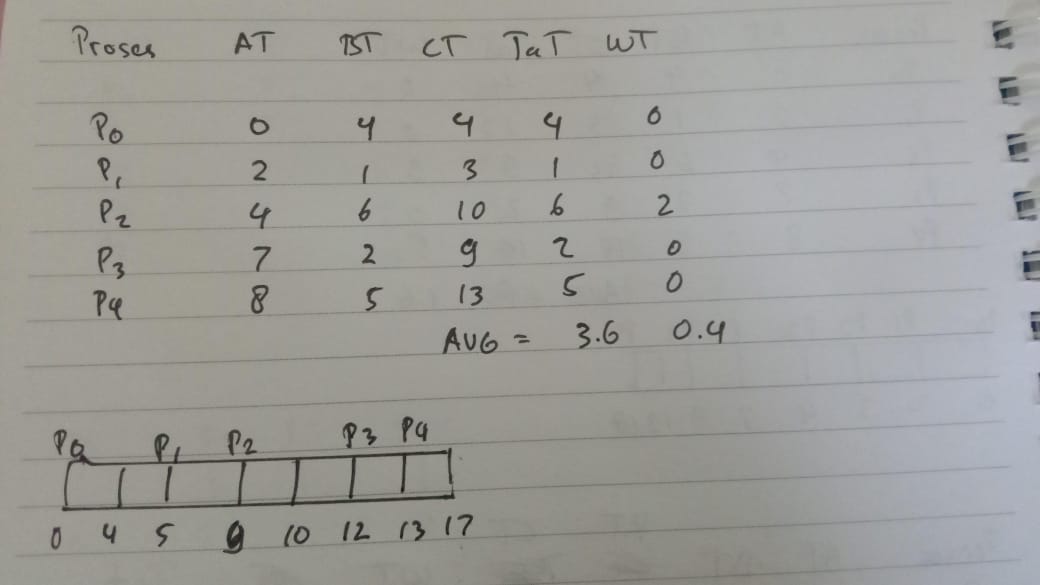 Proses AT BT CT TaT WT
P0 0 4 4 4 0
P1 2 1 3 1 0
P2 4 6 10 6 2
P3 7 2 9 2 0
P4 8 5 13 5 0
AVG = 3.6 0.4
P0 P1 P2 P3 P4
0 4 5 9 10 12 13 17